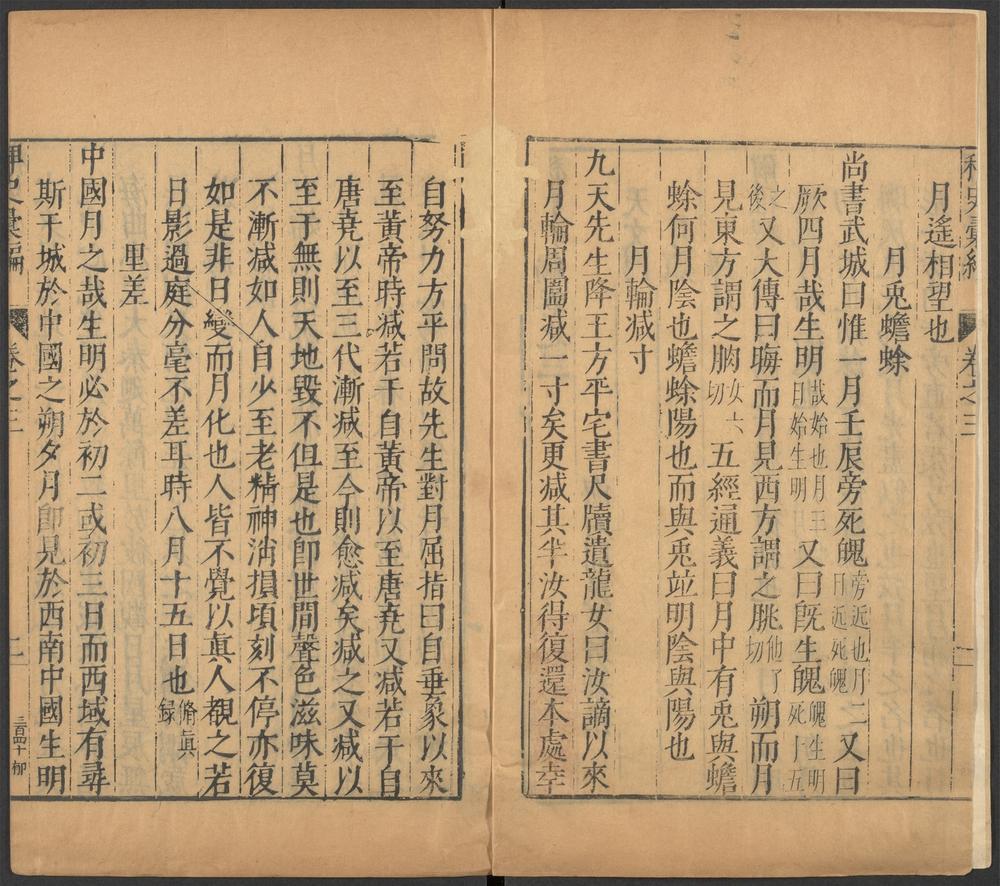 稗史彙編　卷之三　一
月遙相望也
月兎蟾蜍
尚書武城曰惟一月壬辰旁死魄旁近也月二日近死魄又曰
厥四月哉生明哉始也月三日始生明又曰旣生魄魄生明死十五
之後又大傳曰晦而月見西方謂之朓他了切朔而月
見東方謂之朒女六切五經通義曰月中有兎與蟾
蜍何月陰也蟾蜍陽也而與兎並明陰與陽也
月輪减寸
九天先生降王方平宅書尺牘遺龍女曰汝謫以來
月輪周圍减一寸矣更减其半汝得復還本處幸
自努力方平問故先生對月屈指曰自垂象以來
至黃帝時减若干自黃帝以至唐堯又减若干自
唐堯以至三代漸减至今則愈减矣减之又减以
至于無則天地毀不但是也卽世間聲色滋味莫
不漸减如人自少至老精神消損頃刻不停亦復
如是非日變而月化也人皆不覺以眞人觀之若
日影過庭分毫不差耳時八月十五日也脩眞錄
里差
中國月之哉生明必於初二或初三日而西域有尋
斯干城於中國之朔夕月卽見於西南中國生明
稗史彙編　卷之三　二　三百四十　柳